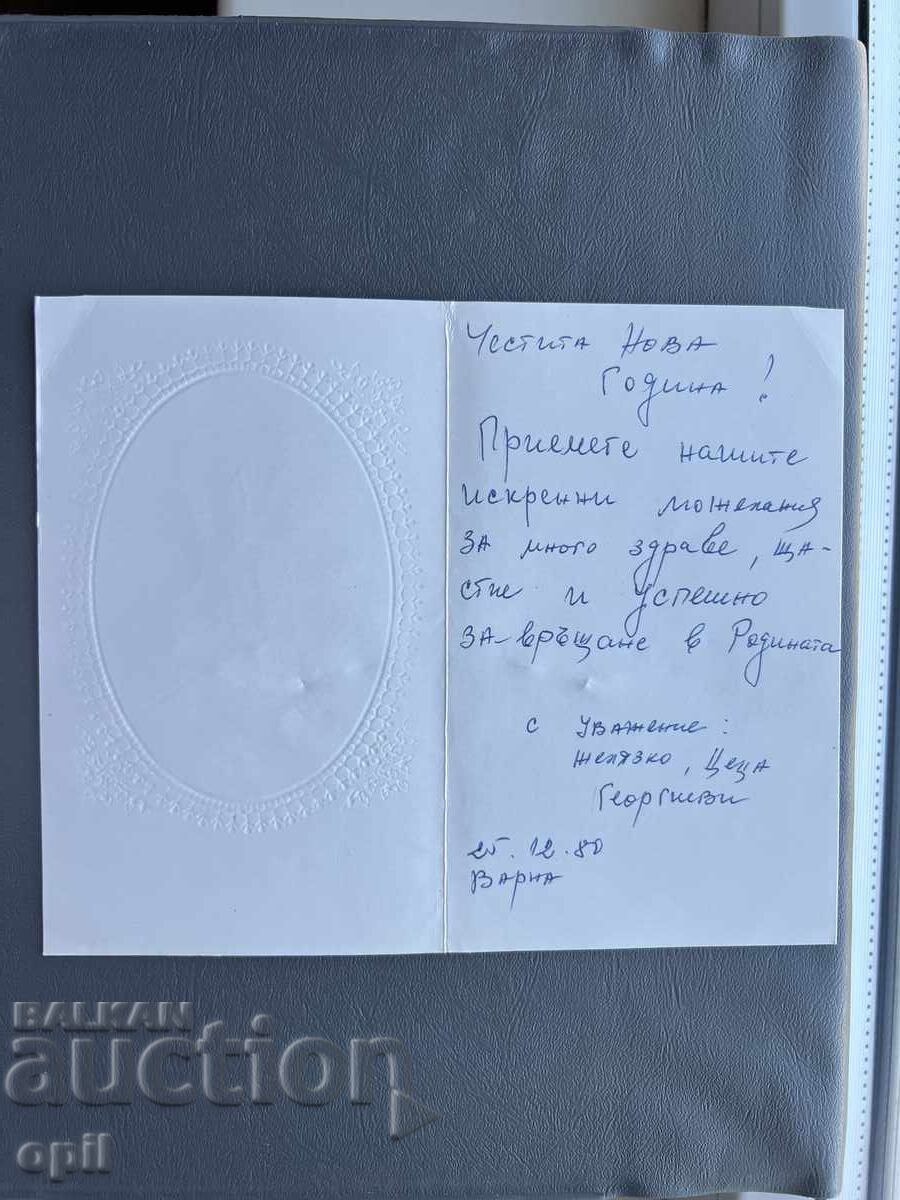 Честита Нова
Година!
Приемете нашите
искренни пожелания
за много здраве, ща-
стие и успешно
за-връщане в Родината
с уважение:
Желязко, Цеца
Георгиеви
25.12.80
Варна
BALKAN
auction
opil